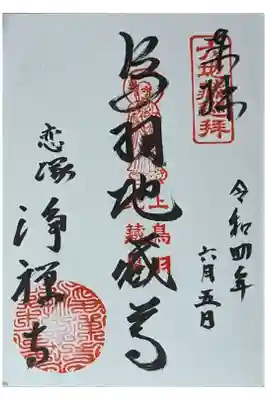 奉拝
六地蔵巡拝
令和四年
六月五日
鳥羽地蔵尊
上鳥羽
恋塚
浄禅寺